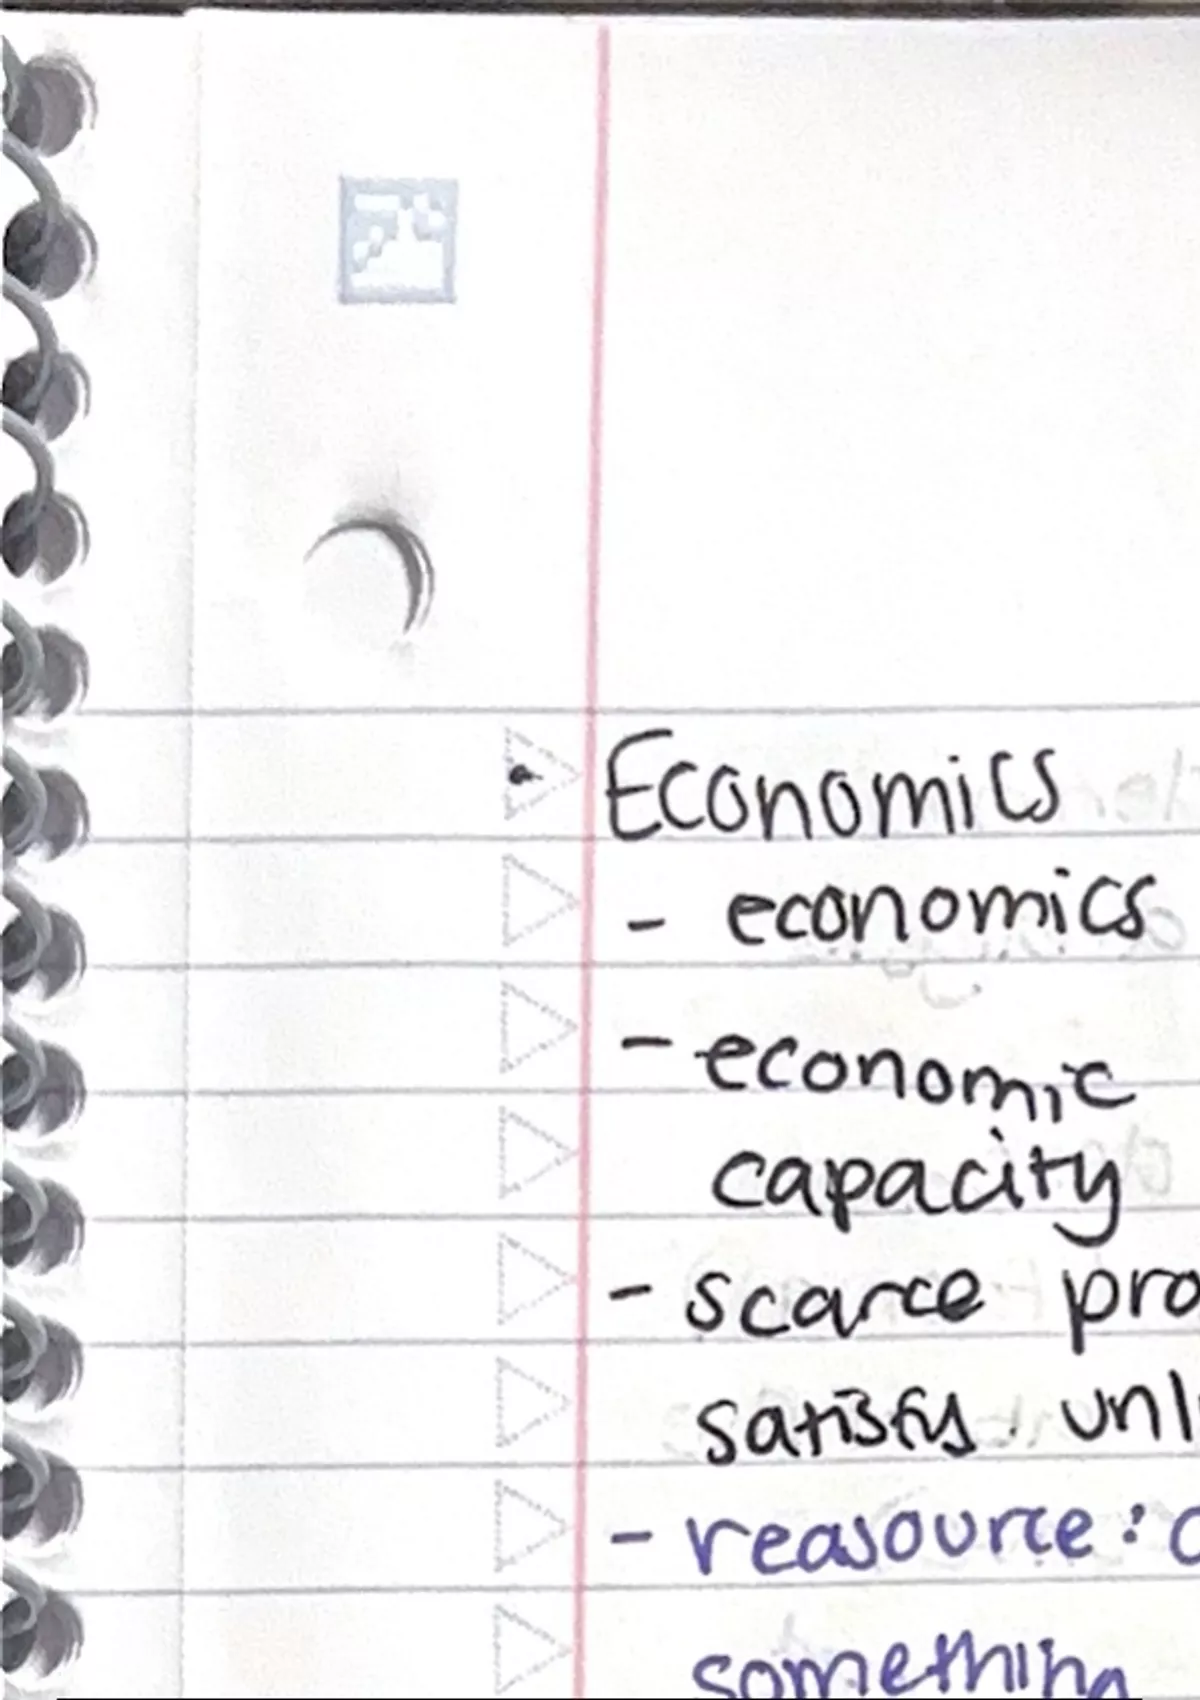 Economics
- economics
- economic
capacity
- scarce pro
satisfy unl
- reasource: c
something